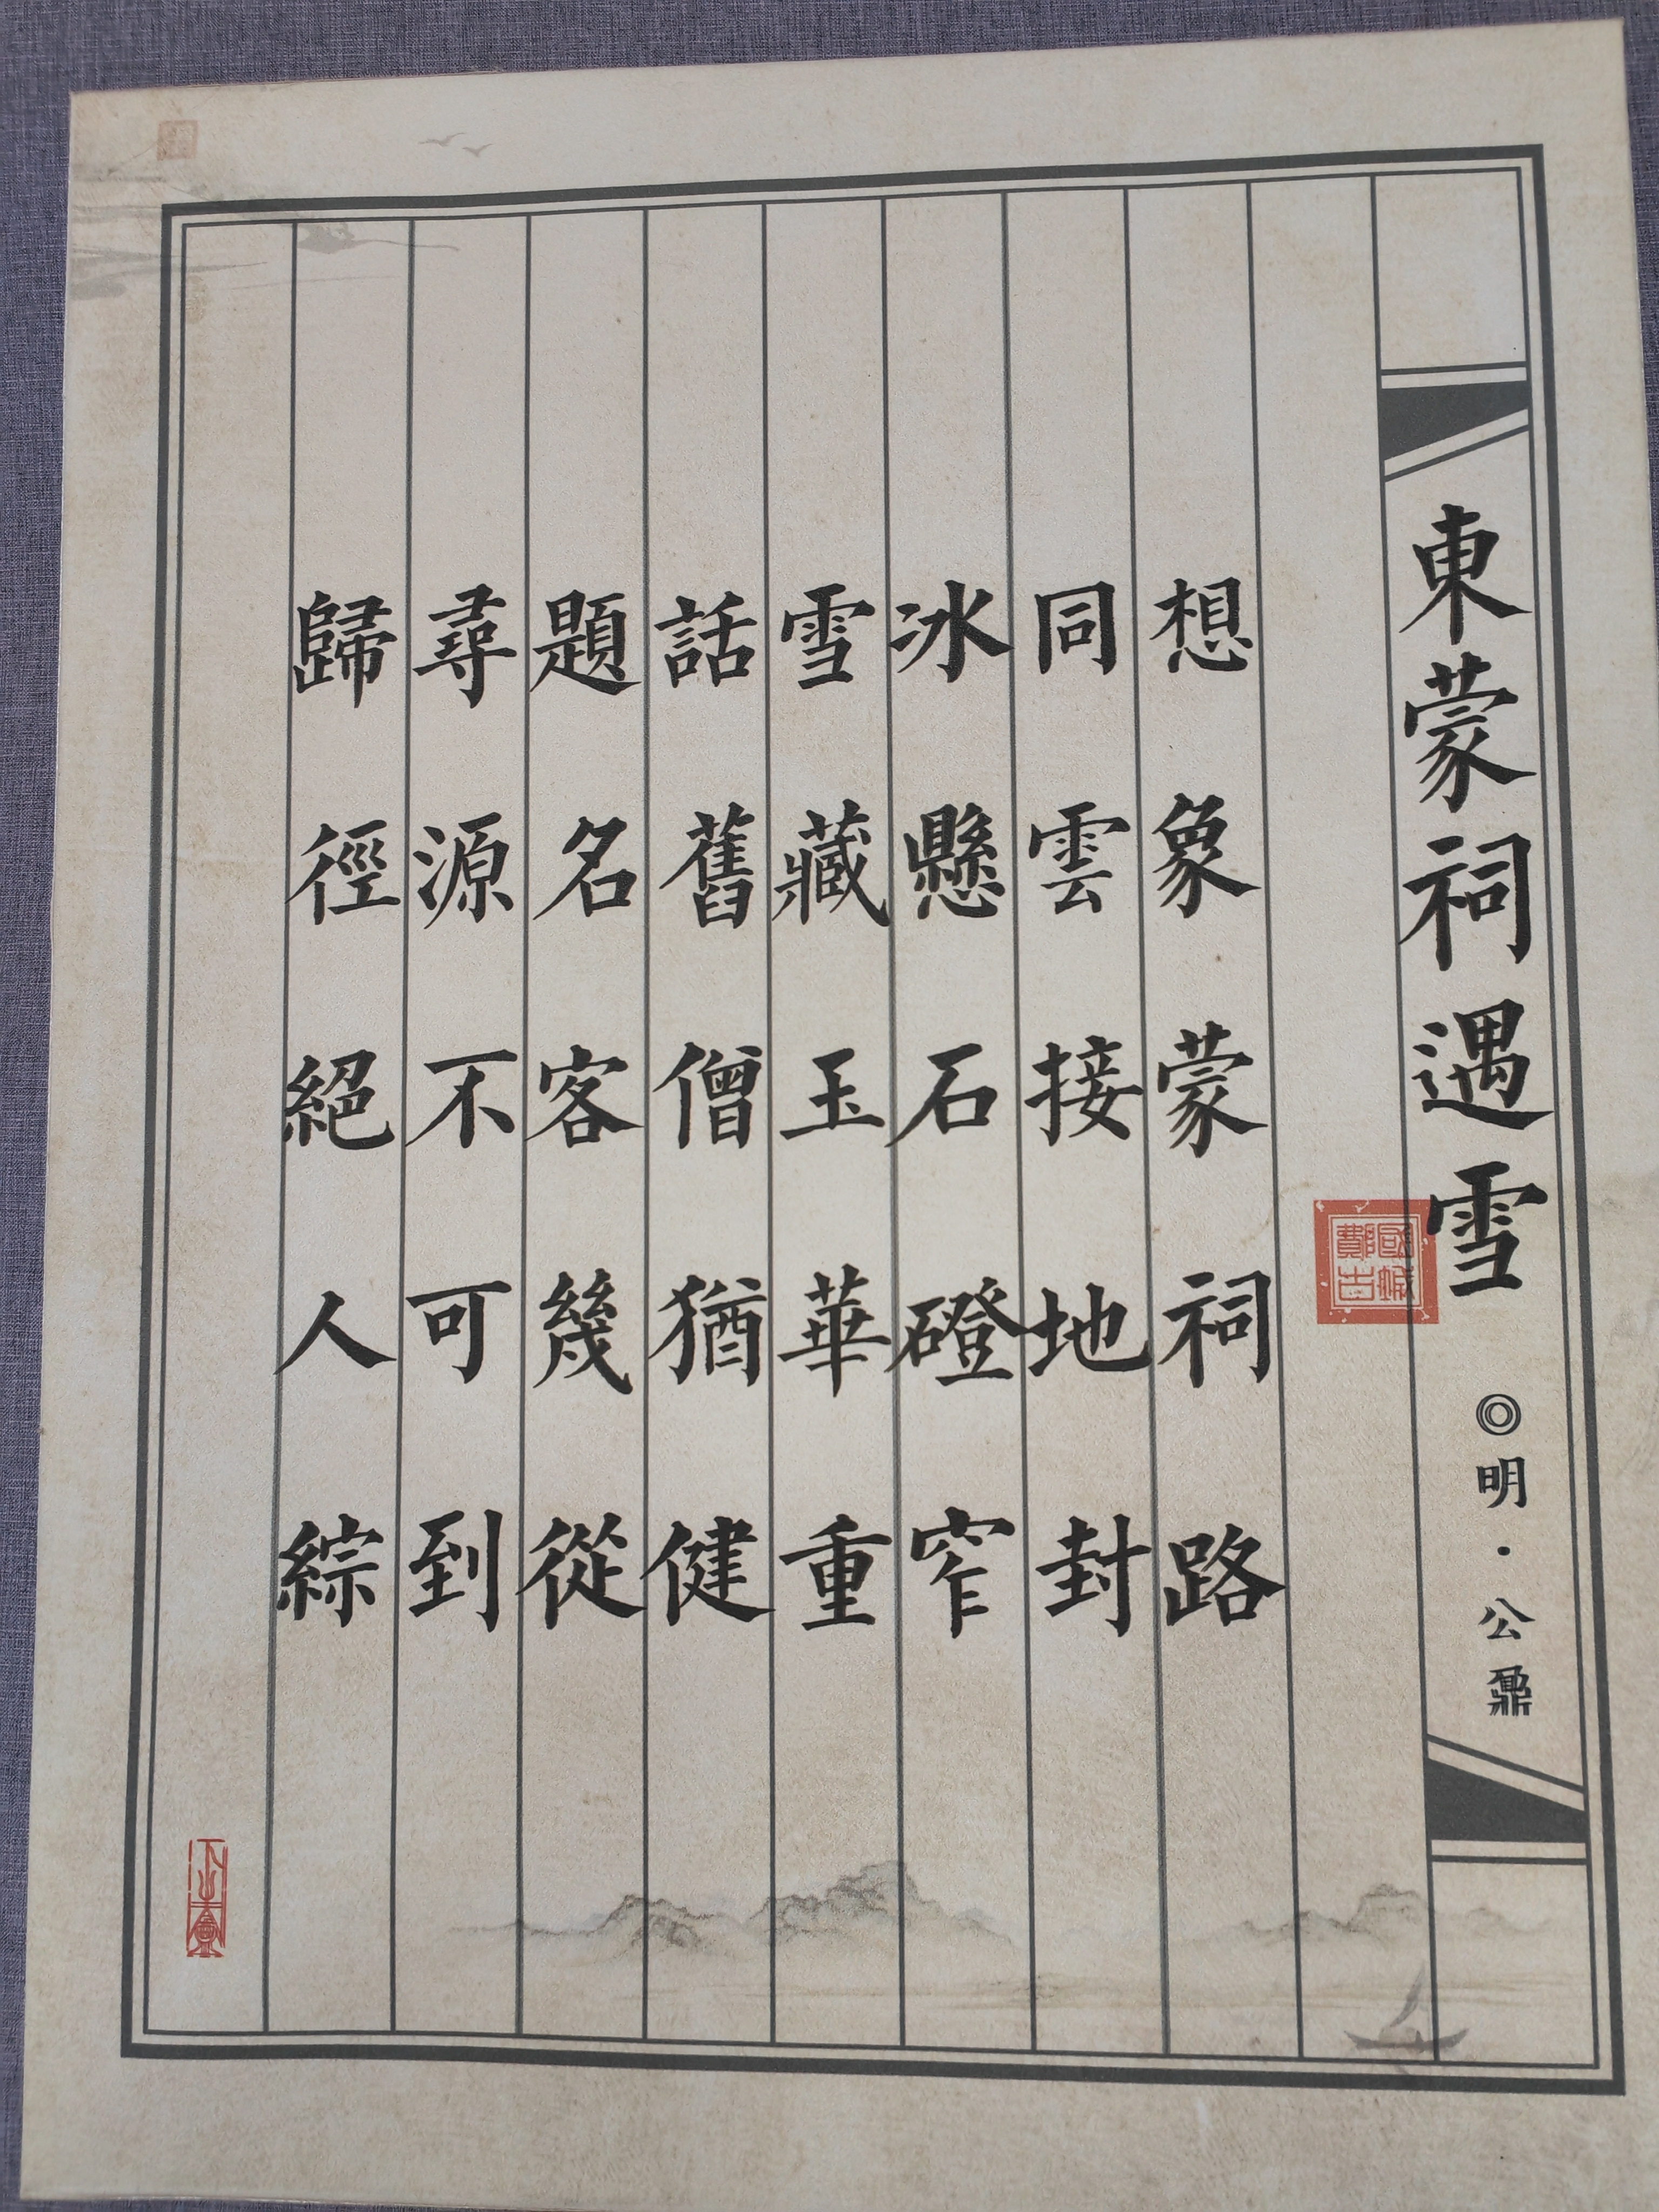 東蒙祠遇雪 ◎明·公鼐
想象蒙祠路
同雲接地封
冰懸石磴窄
雪藏玉華重
話舊僧猶健
題名客幾從
尋源不可到
歸徑絕人綜
費國古城